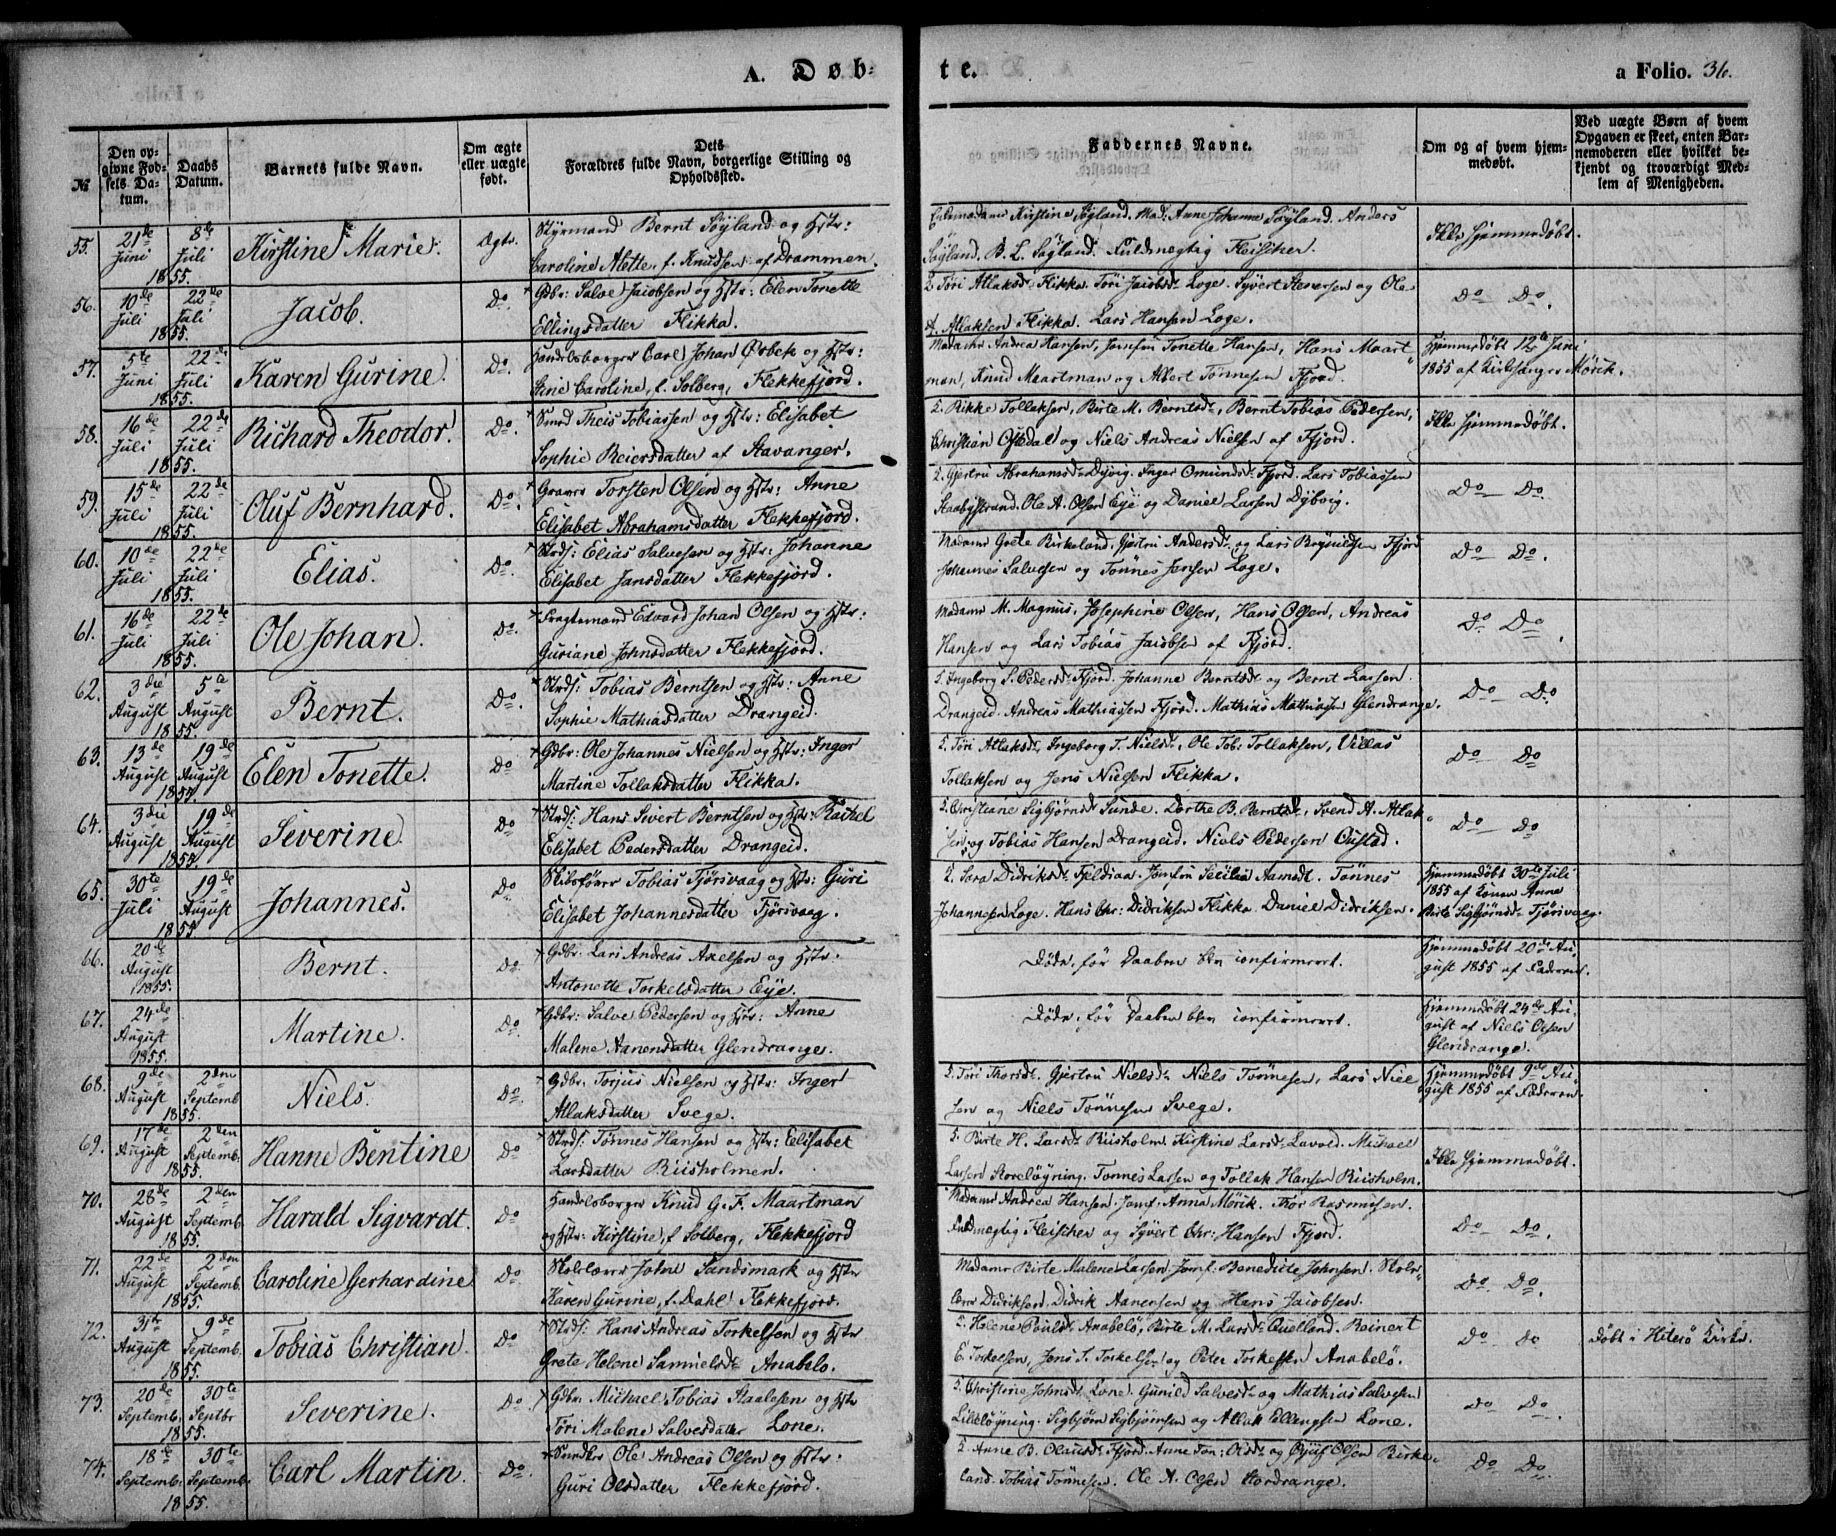 A. Døb-
te.
a Folio. 36.
№
Den op-
givne Fød-
sels Da-
tum.
Daabs
Datum.
Barnets fulde Navn.
Om ægte
eller uægte
født.
Dets
Forældres fulde Navn, borgerlige Stilling og
Opholdssted.
Faddernes Navne.
Om og af hvem hjem-
medøbt.
Ved uægte Børn af hvem
Opgaven er skeet, enten Bar-
nemoderen eller hvilket be-
kjendt og troværdigt Med-
lem af Menigheden.
55. 21de Juni 8de Juli 1855. Kirstine Marie. Ægte.
Styrmand Bernt Søyland og Hstr:
Caroline Alette, f. Knudsen af Drammen.
Kirstine Søyland. Mad: Anne Johanne Søyland. Anders
Søyland. B. L. Søyland. Fuldmegtig Fleischer.
Ikke Hjemmedøbt.
56. 10de Juli 22de Juli 1855. Jacob. Do.
Gdbr: Salve Jacobsen og Hstr: Elen Tonette
Ellingsdatter Flikka.
Töri Atlaksdr Flikka. Töri Jacobsdr Loge. Syvert Stenersen og Ole
A. Atlaksen Flikka. Lars Hansen Loge.
Do Do.
57. 5te Juni 22de Juli 1855. Karen Gurine. Do.
Handelsborger Carl Johan Örbek og Hstr:
Sine Caroline, f. Solberg, Flekkefjord.
Madame Andrea Hansen, Jomfru Tonette Hansen, Hans Maart
man, Knud Maartman og Albert Tönnesen Fjord.
Hjemmedöbt 12te Juni
1855 af Kirksanger Mörik.
58. 16de Juli 22de Juli 1855. Richard Theodor. Do.
Smed Theis Tobiassen og Hstr: Elisabet
Sophie Reiersdatter af Stavanger.
Rikke Tollaksen, Birte M. Berntsdr, Bernt Tobias Pedersen,
Christian Osedal og Niels Andreas Nielsen af Fjord.
Ikke Hjemmedøbt.
59. 15de Juli 22de Juli 1855. Oluf Bernhard. Do.
Graver Torsten Olsen og Hstr: Anne
Elisabet Abrahamsdatter Flekkefjord.
Gjertru Abrahamsdr Dyvig. Inger Omundsdr Fjord. Lars Tobiassen
Raabystrand. Ole A. Olsen Eye og Daniel Larsen Dybvig.
Do Do.
60. 10de Juli 22de Juli 1855. Elias. Do.
Strds: Elias Salvesen og Hstr: Johanne
Elisabet Jansdatter Flekkefjord.
Madame Grete Birkeland. Gjertru Andersdr og Lars Reynildsen Fjord
Johannes Salvesen og Tönnes Jensen Loge.
Do Do.
61. 16de Juli 22de Juli 1855. Ole Johan. Do.
Fragtemand Edvard Johan Olsen og Hstr:
Guriane Johnsdatter Flekkefjord.
Madame M. Magnus, Josephine Olsen, Hans Olsen, Andreas
Hansen og Lars Tobias Jacobsen af Fjord.
Do Do.
62. 3die August 5te August 1855. Bernt. Do.
Strds: Tobias Berntsen og Hstr: Anne
Sophie Mathiasdatter Drangeid.
Ingeborg S. Pedersdr Fjord. Johanne Berntsdr og Bernt Larsen
Drangeid. Andreas Mathiassen Fjord. Mathias Mathiasen Glendrange.
Do Do.
63. 13de August 19de August 1855. Elen Tonette. Do
Gdbr: Ole Johannes Nielsen og Hstr: Inger
Martine Tollaksdatter Flikka.
Töri Atlaksdr, Ingeborg T. Nielsdr, Ole Tob: Tollaksen, Villas
Tollaksen og Jens Nielsen Flikka.
Do Do
64. 3die August 19de August 1855. Severine. Do
Strds: Hans Sivert Berntsen og Hstr: Rachel
Elisabet Pedersdatter Drangeid.
Christiane Sigbjörnsdr Sunde. Dorthe B. Berntsdr, Svend A. Atlak
sen, og Tobias Hansen Drangeid. Niels Pedersen Oustad.
Do Do
65. 30te Juli 19de August 1855. Johannes. Do
Skibsförer Tobias Tjörsvaag og Hstr: Guri
Elisabet Johannesdatter Tjörsvaag.
Sara Didriksdr Fjeldsaa. Jomfru Secilia Aamodt. Tönnes
Johannesen Loge. Hans Chr: Didriksen Flikka. Daniel Didriksen.
Hjemmedöbt 30te Juli
1855 af Konen Anne
Birte Sigbjörnsdr Tjörsvaag.
66. 20de August 1855. Bernt. Do.
Gdbr. Lars Andreas Axelsen og Hstr.
Antonette Torkelsdatter Eye.
Döde, för Daaben blev confirmeret.
Hjemmedöbt 20de Au
gust 1855 af Faderen.
67. 24de August 1855. Martine. Do
Gdbr: Salve Pedersen og Hstr: Anne
Malene Aanensdatter Glendrange.
Döde, för Daaben blev confirmeret.
Hjemmedöbt 24de Au
gust af Niels Olsen
Glendrange.
68. 9de August 2den Septemb 1855. Niels. Do.
Gdbr. Torjus Nielsen og Hstr: Inger
Atlaksdatter Svege.
Töri Thorsdr. Gjertru Nielsdr Niels Tönnesen, Lars Niel
sen og Niels Tönnesen Svege.
Hjemmedöbt 9de Au
gust 1855 af Faderen.
69. 17de August 2den Septemb. 1855. Hanne Bentine Do
Strds: Tönnes Hansen og Hstr: Elisabet
Larsdatter Riisholmen.
Birte H. Larsdr Riisholm. Kirstine Larsdr Lavold. Michael
Larsen Storelögning. Tönnes Larsen og Tollak Hansen Riisholm.
Ikke Hjemmedöbt.
70. 28de August 2den Septemb 1855. Harald Sigvardt. Do
Handelsborger Knud G. F. Maartman
og Hstr: Kirstine, f. Solberg, Flekkefjord
Madame Andrea Hansen. Jomf. Anna Mörik. Thor Rasmusen.
Fuldmegtig Fleischer og Syvert Chr: Hansen Fjord.
Do Do.
71. 22de August 2den Septemb. 1855. Caroline Gerhardine Do
Skolelærer John Sandsmark og Hstr
Karen Gurine, f. Dahl Flekkefjord.
Madame Birte Malene Larsen. Jomf: Benedicte Johnsen. Skole
lærer Didriksen. Didrik Aanensen og Hans Jacobsen.
Do Do.
72. 31te August 9de Septemb. 1855. Tobias Christian. Do
Strds: Hans Andreas Torkelsen og Hstr
Grete Helene Samuelsdr Anabelö.
Helene Poulsdr Anabelö, Birte M. Larsdr Quelland. Reinert
E. Torkelsen, Jens S. Torkelsen og Peter Torkelsen Anabelö.
Do Do
Döbt i Hiterö Kirke.
73. 20de Septemb. 30te Septbr 1855. Severine. Do
Gdbr. Michael Tobias Staalesen og Hstr
Töri Malene Salvesdatter Lone.
Christine Johnsdr Lone. Gunild Salvesdr og Mathias Salvesen
Lillelögning. Sigbjörn Sigbjörnsen og Atlak Ellingsen Lone.
Do Do.
74. 18de Septemb. 30te Septemb. 1855. Carl Martin. Do.
Ole Andreas Olsen og Hstr:
Guri Olsdatter Flekkefjord.
Anne B. Olausdr Fjord. Anne Ton: Olsdr og Olsen Birke
land. Tobias Tönnesen. Ole A. Olsen Nordrange.
Do Do.